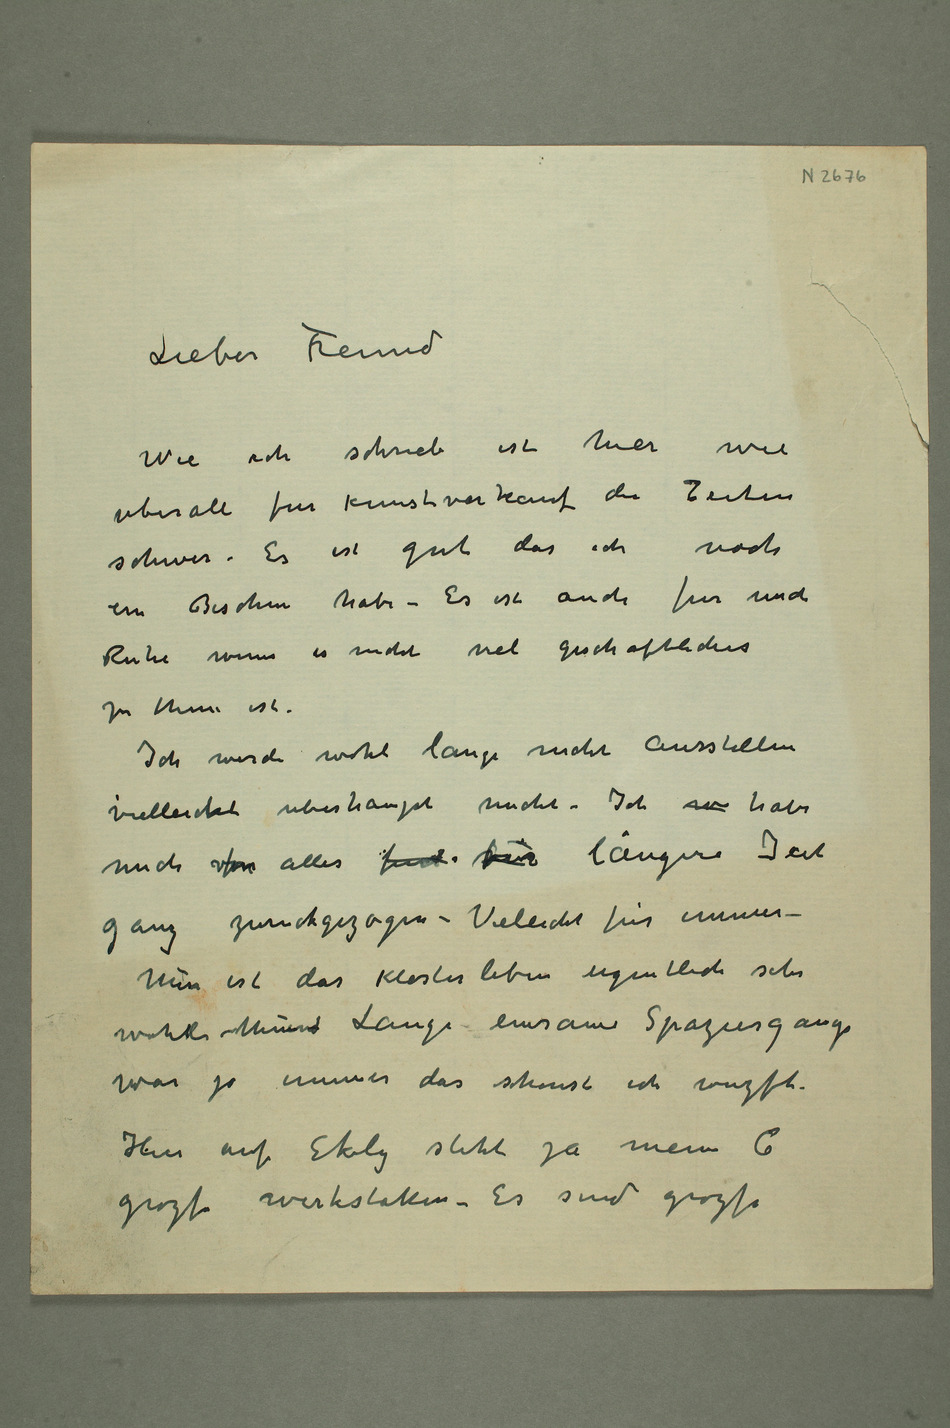 N 2676
Lieber Freund
Wie ich schrieb ist hier wie
uberall fur Kunstverkauf die Zeiten
schwer. Es ist gut das ich noch
ein Bischen habe – Es ist auch fur mich
Ruhe wenn es nicht viel geschaftliches
zu thun ist.
Ich werde wohl lange nicht ausstellen
vielleicht uberhaupt nicht – Ich habe
mich von alles für längere Zeit
ganz zurückgezogen – Vieleicht für immer –
Nun ist das Klosterleben eigentlich sehr
Lange einsame Spaziergange
war ja immer das schonst ich wuzfte.
Hier auf Ekely steht ja meine 6
grozfe werkstaten – Es sind grozfe